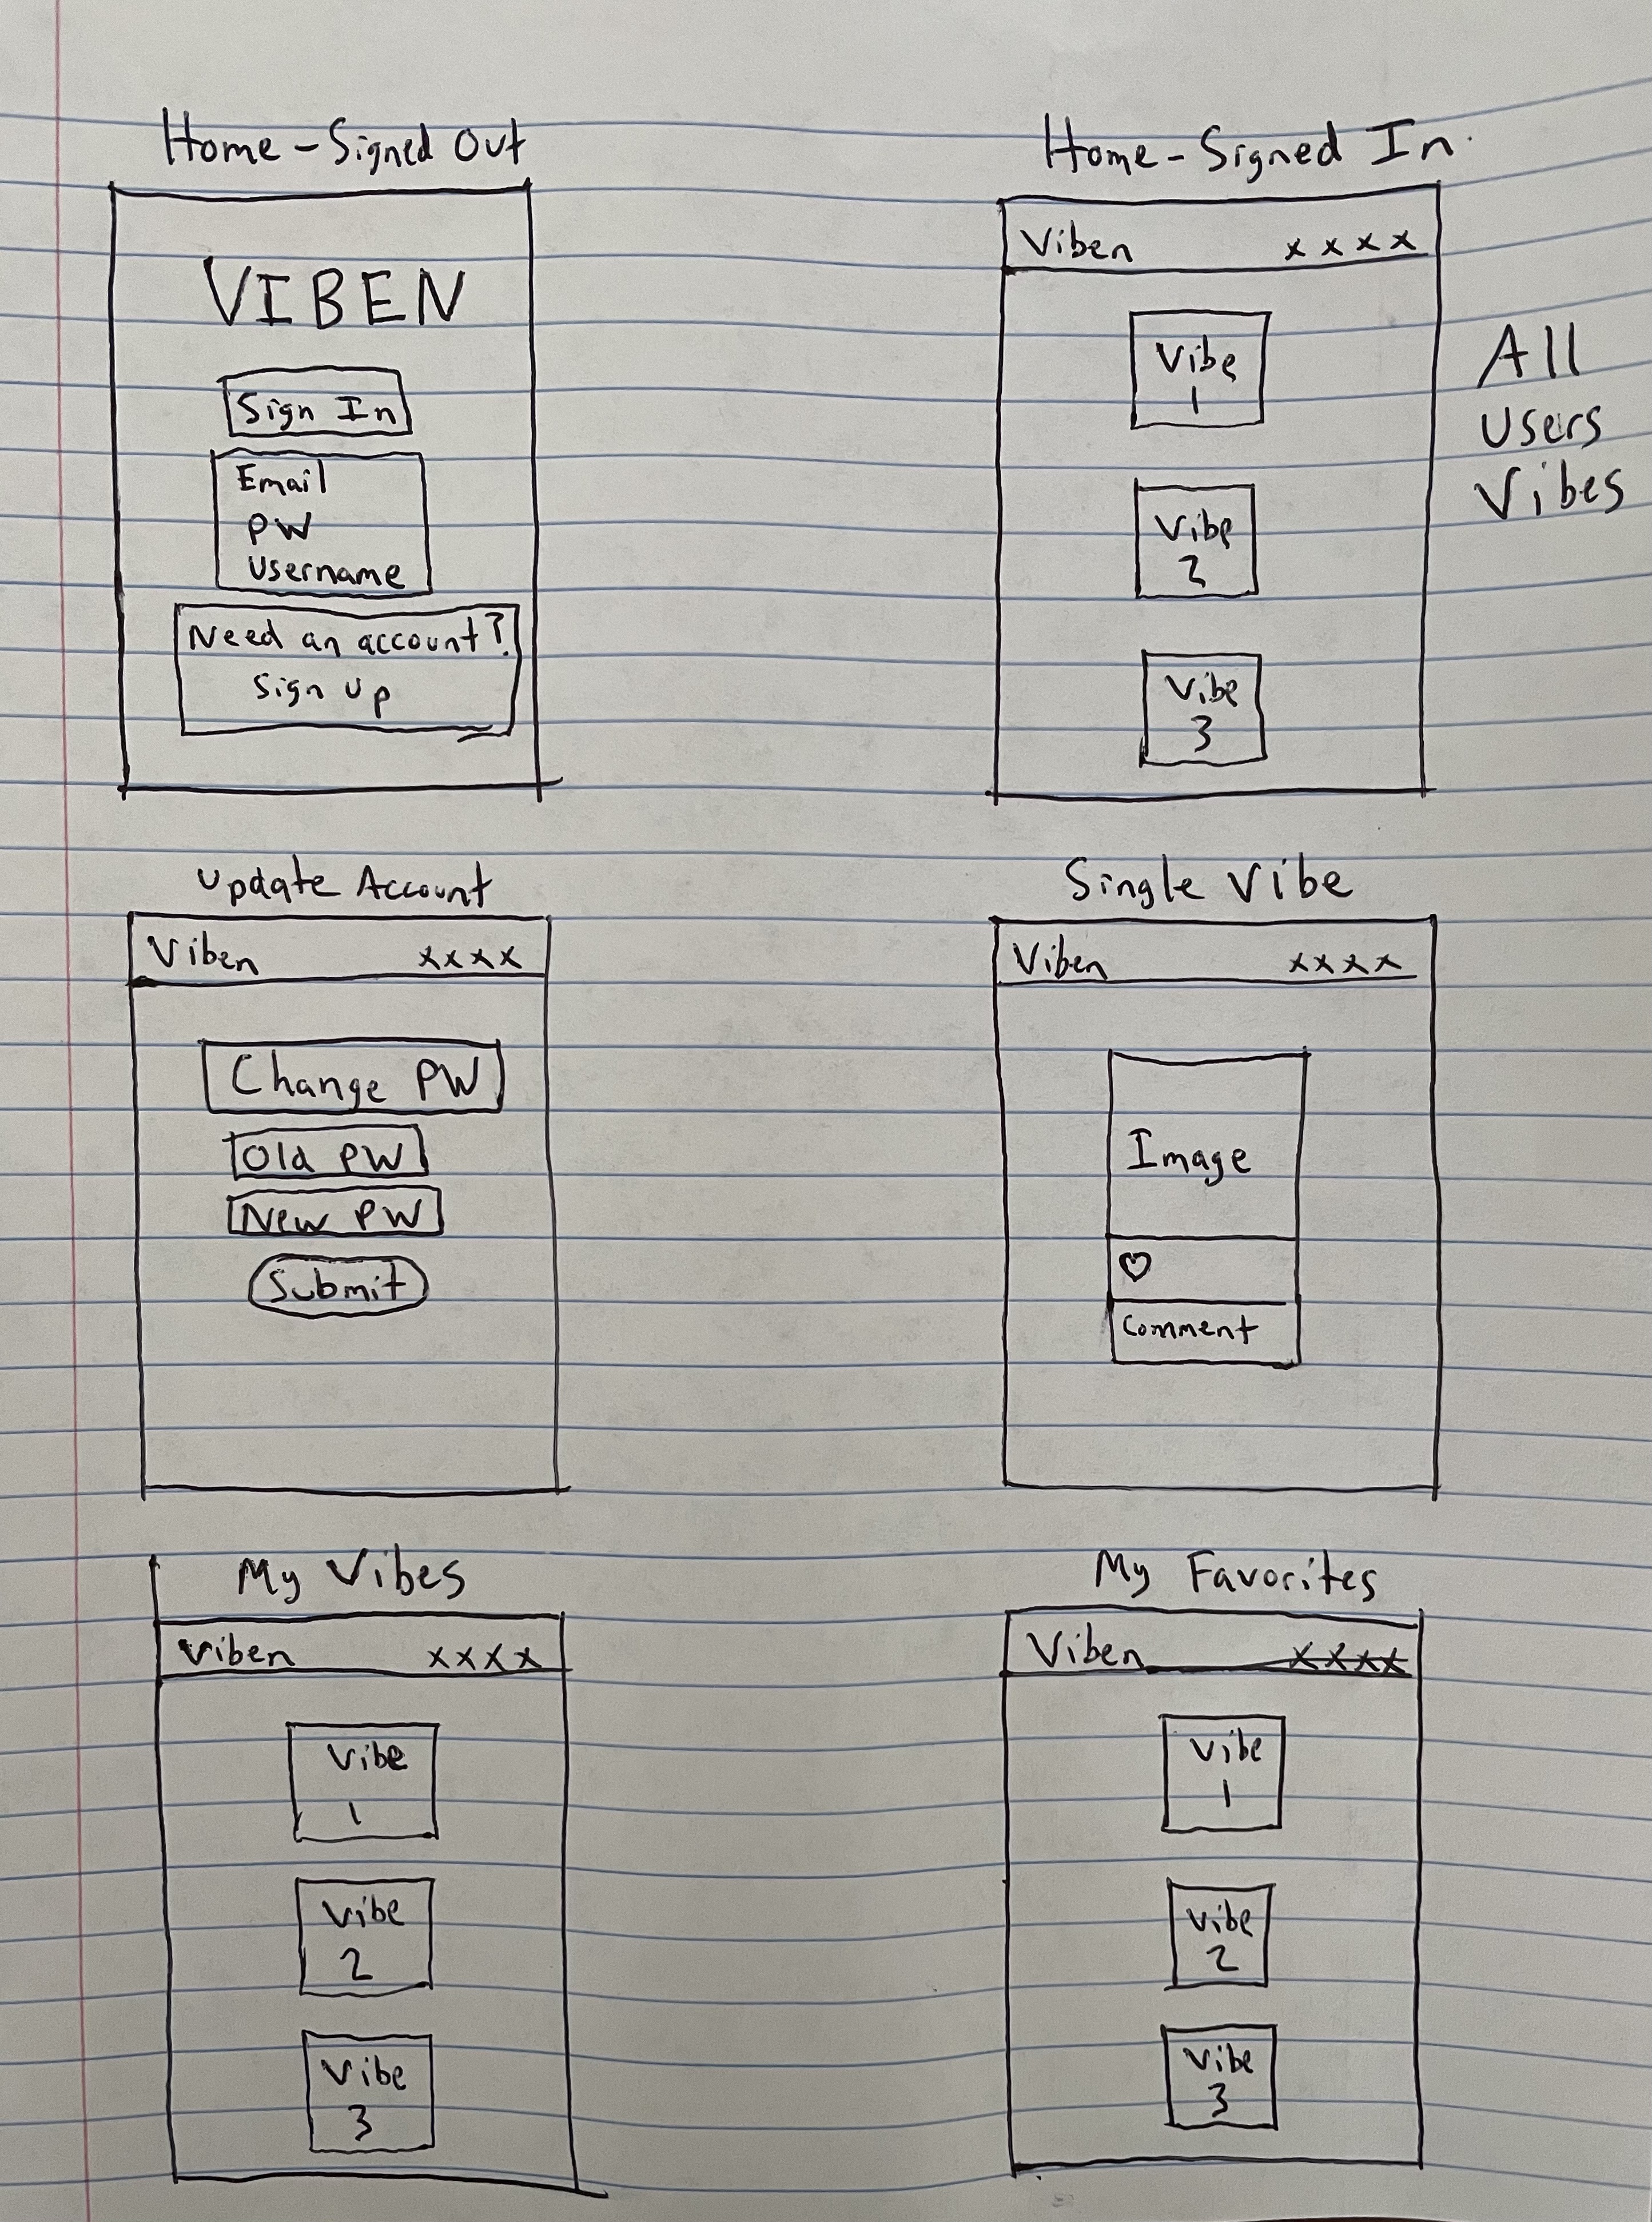 Home - Signed Out
VIBEN
Sign In
Email
PW
Username
Need an account?
Sign Up
Home - Signed In
Viben xxxx
Vibe
1
Vibe
2
Vibe
3
All
Users
Vibes
Update Account
Viben xxxx
Change PW
Old PW
New PW
Submit
Single Vibe
Viben xxxx
Image
♡
Comment
My Vibes
Viben xxxx
Vibe
1
Vibe
2
Vibe
3
My Favorites
Viben xxxx
Vibe
1
Vibe
2
Vibe
3